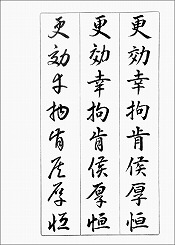 更効幸拘肯侯厚恒
更効幸拘肯侯厚恒
更効幸拘肯侯厚恒